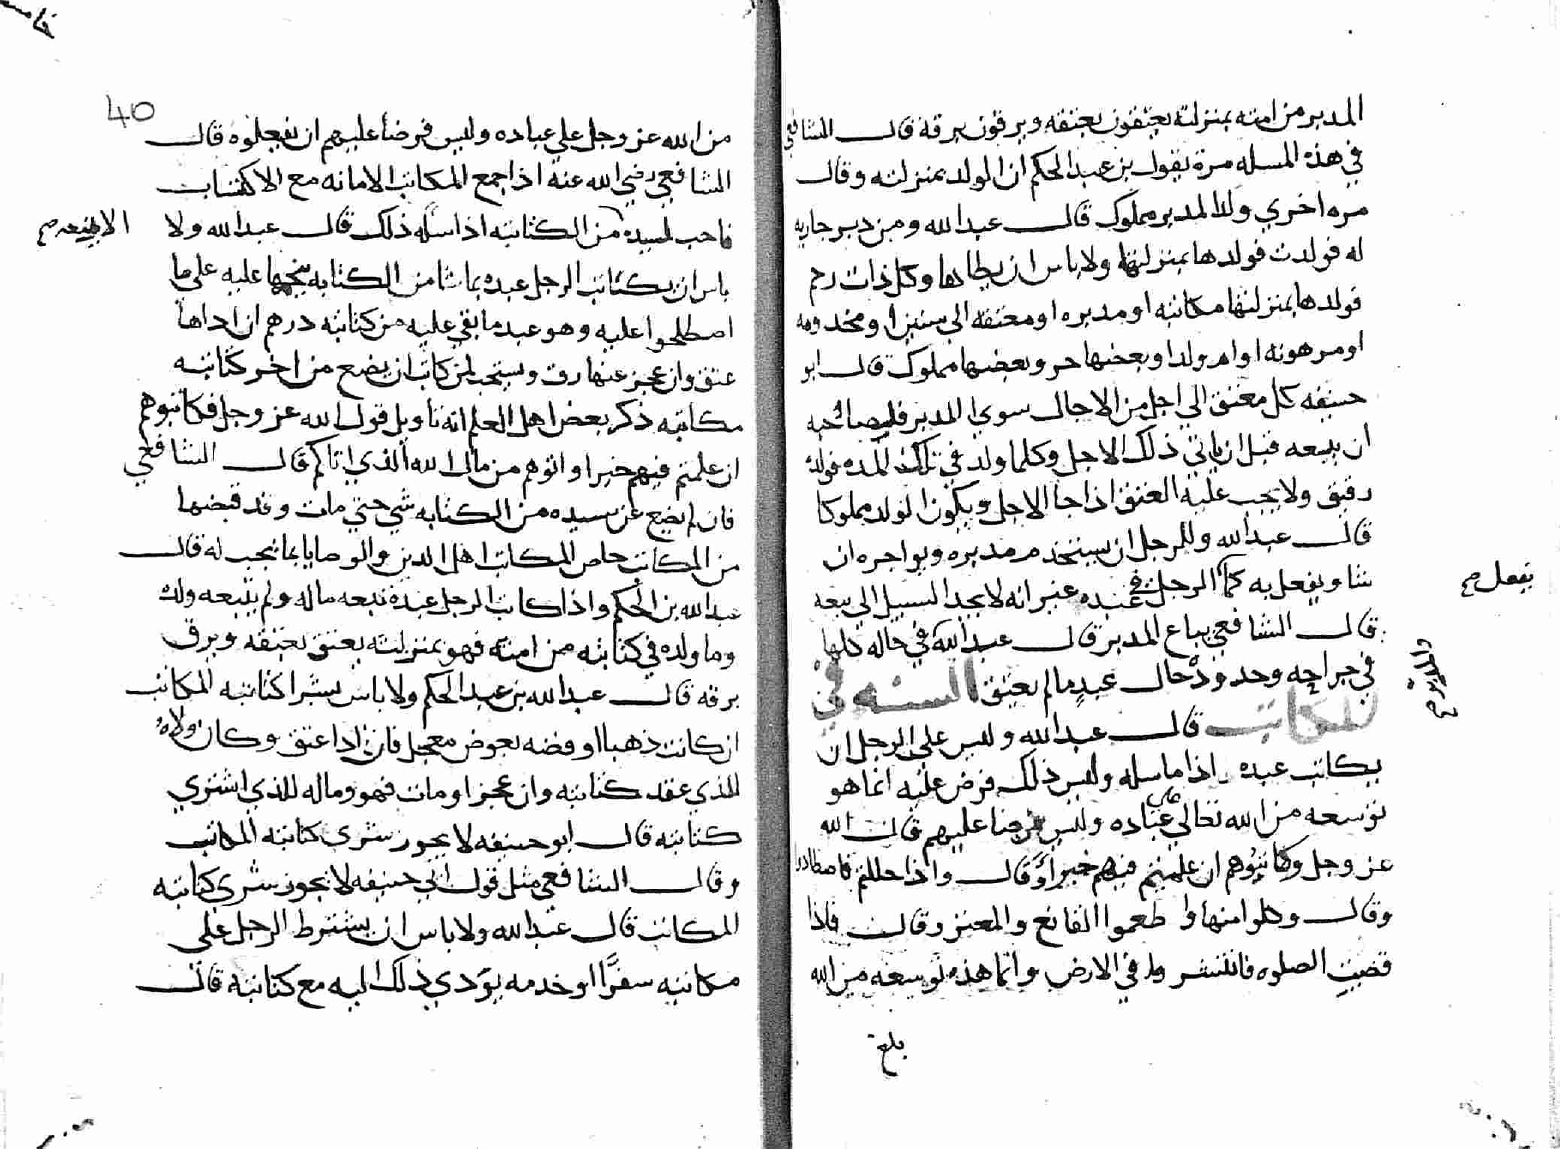 المدبر من امته بمنزلته يعتقون بعتقه ويرقون برقه قال الشافعي
في هذه المسله مرة بقول بن عبد الحكم ان الولد بمنزلته وقال
مره اخري ولد المدبر مملوك قال عبد الله ومن دبر جاريه
له فولدت فولدها بمنزلتها ولا باس ان يطاها وكل ذات رحم
فولدها بمنزلتها مكاتبه او مدبره او معتقه الي سنين او مخدومه
او مرهونه او ام ولد او بعضها حر وبعضها مملوك قال ابو
حنيفه كل معتق الي اجل من الاجال سوي المدبر فليصاحبه
ان يبيعه قبل ان ياتي ذلك الاجل وكلما ولد في تلك المده فولده
رقيق ولا يجب عليه العتق اذا جا الاجل ويكون الولد مملوكا
قال عبد الله وللرجل ان يستخدم مدبره ويواجره ان
شا ويفعل به كما الرجل في عبده غير انه لا يجد السبيل الي بيعه
يفعل صح
قال الشافعي يباع المدبر قال عبد الله في حاله كلها
في جراحه وحدوده حال عبد ما لم يعتق السنه في
المكاتب قال عبد الله وليس علي الرجل ان
يكاتب عبده اذا ما سله وليس ذلك فرض عليه انما هو
توسعه من الله تعالي علي عباده وليس فرضا عليهم قال الله
عز وجل وكاتبوهم ان علمتم فيهم خيرا وقال واذا حللتم فاصطادوا
وقال وكلوا منها واطعموا القانع والمعتر وقال فاذا
قضيت الصلوه فانتشروا في الارض وانما هذه توسعه من الله
بلغ
40
من الله عز وجل علي عباده وليس فرضا عليهم ان يفعلوه قال
الشافعي رضي الله عنه اذا جمع المكاتب الامانه مع الاكتساب
فاحب لسيده من الكتابه اذا سله ذلك قال عبد الله ولا
الا يمنعه صح
باس ان يكاتب الرجل عبده بما شا من الكتابه ينجمها عليه علي ما
اصطلحوا عليه وهو عبد ما بقي عليه من كتابته درهم ان اداها
عتق وان عجز عنها رق ويستحب لمن كاتب ان يضع من اخر كتابته
مكاتبه ذكر بعض اهل العلم انه تاويل قول الله عز وجل فكاتبوهم
ان علمتم فيهم خيرا واتوهم من مال الله الذي اتاكم قال الشافعي
فان لم يضع عن سيده من الكتابه شي حتي مات وقد قبضها
من المكاتب حاص المكاتب اهل الدين والوصايا بما يجب له قال
عبد الله بن الحكم واذا كاتب الرجل عبده تبعه ماله ولم يتبعه ولده
وما ولد في كتابته من امته فهو بمنزلته يعتق بعتقه ويرق
برقه قال عبد الله بن عبد الحكم ولا باس بشرا كتابه المكاتب
ان كانت ذهبا او فضه بعوض معجل فان اذا عتق وكان ولاوه
للذي عقد كتابته وان عجز او مات فهو وماله للذي اشتري
كتابته قال ابو حنيفه لا يجوز شري كتابه المكاتب
وقال الشافعي مثل قول ابي حنيفه لا يجوز شري كتابه
المكاتب قال عبد الله ولا باس ان يشترط الرجل علي
مكاتبه سفرا او خدمه يودي ذلك اليه مع كتابته قال